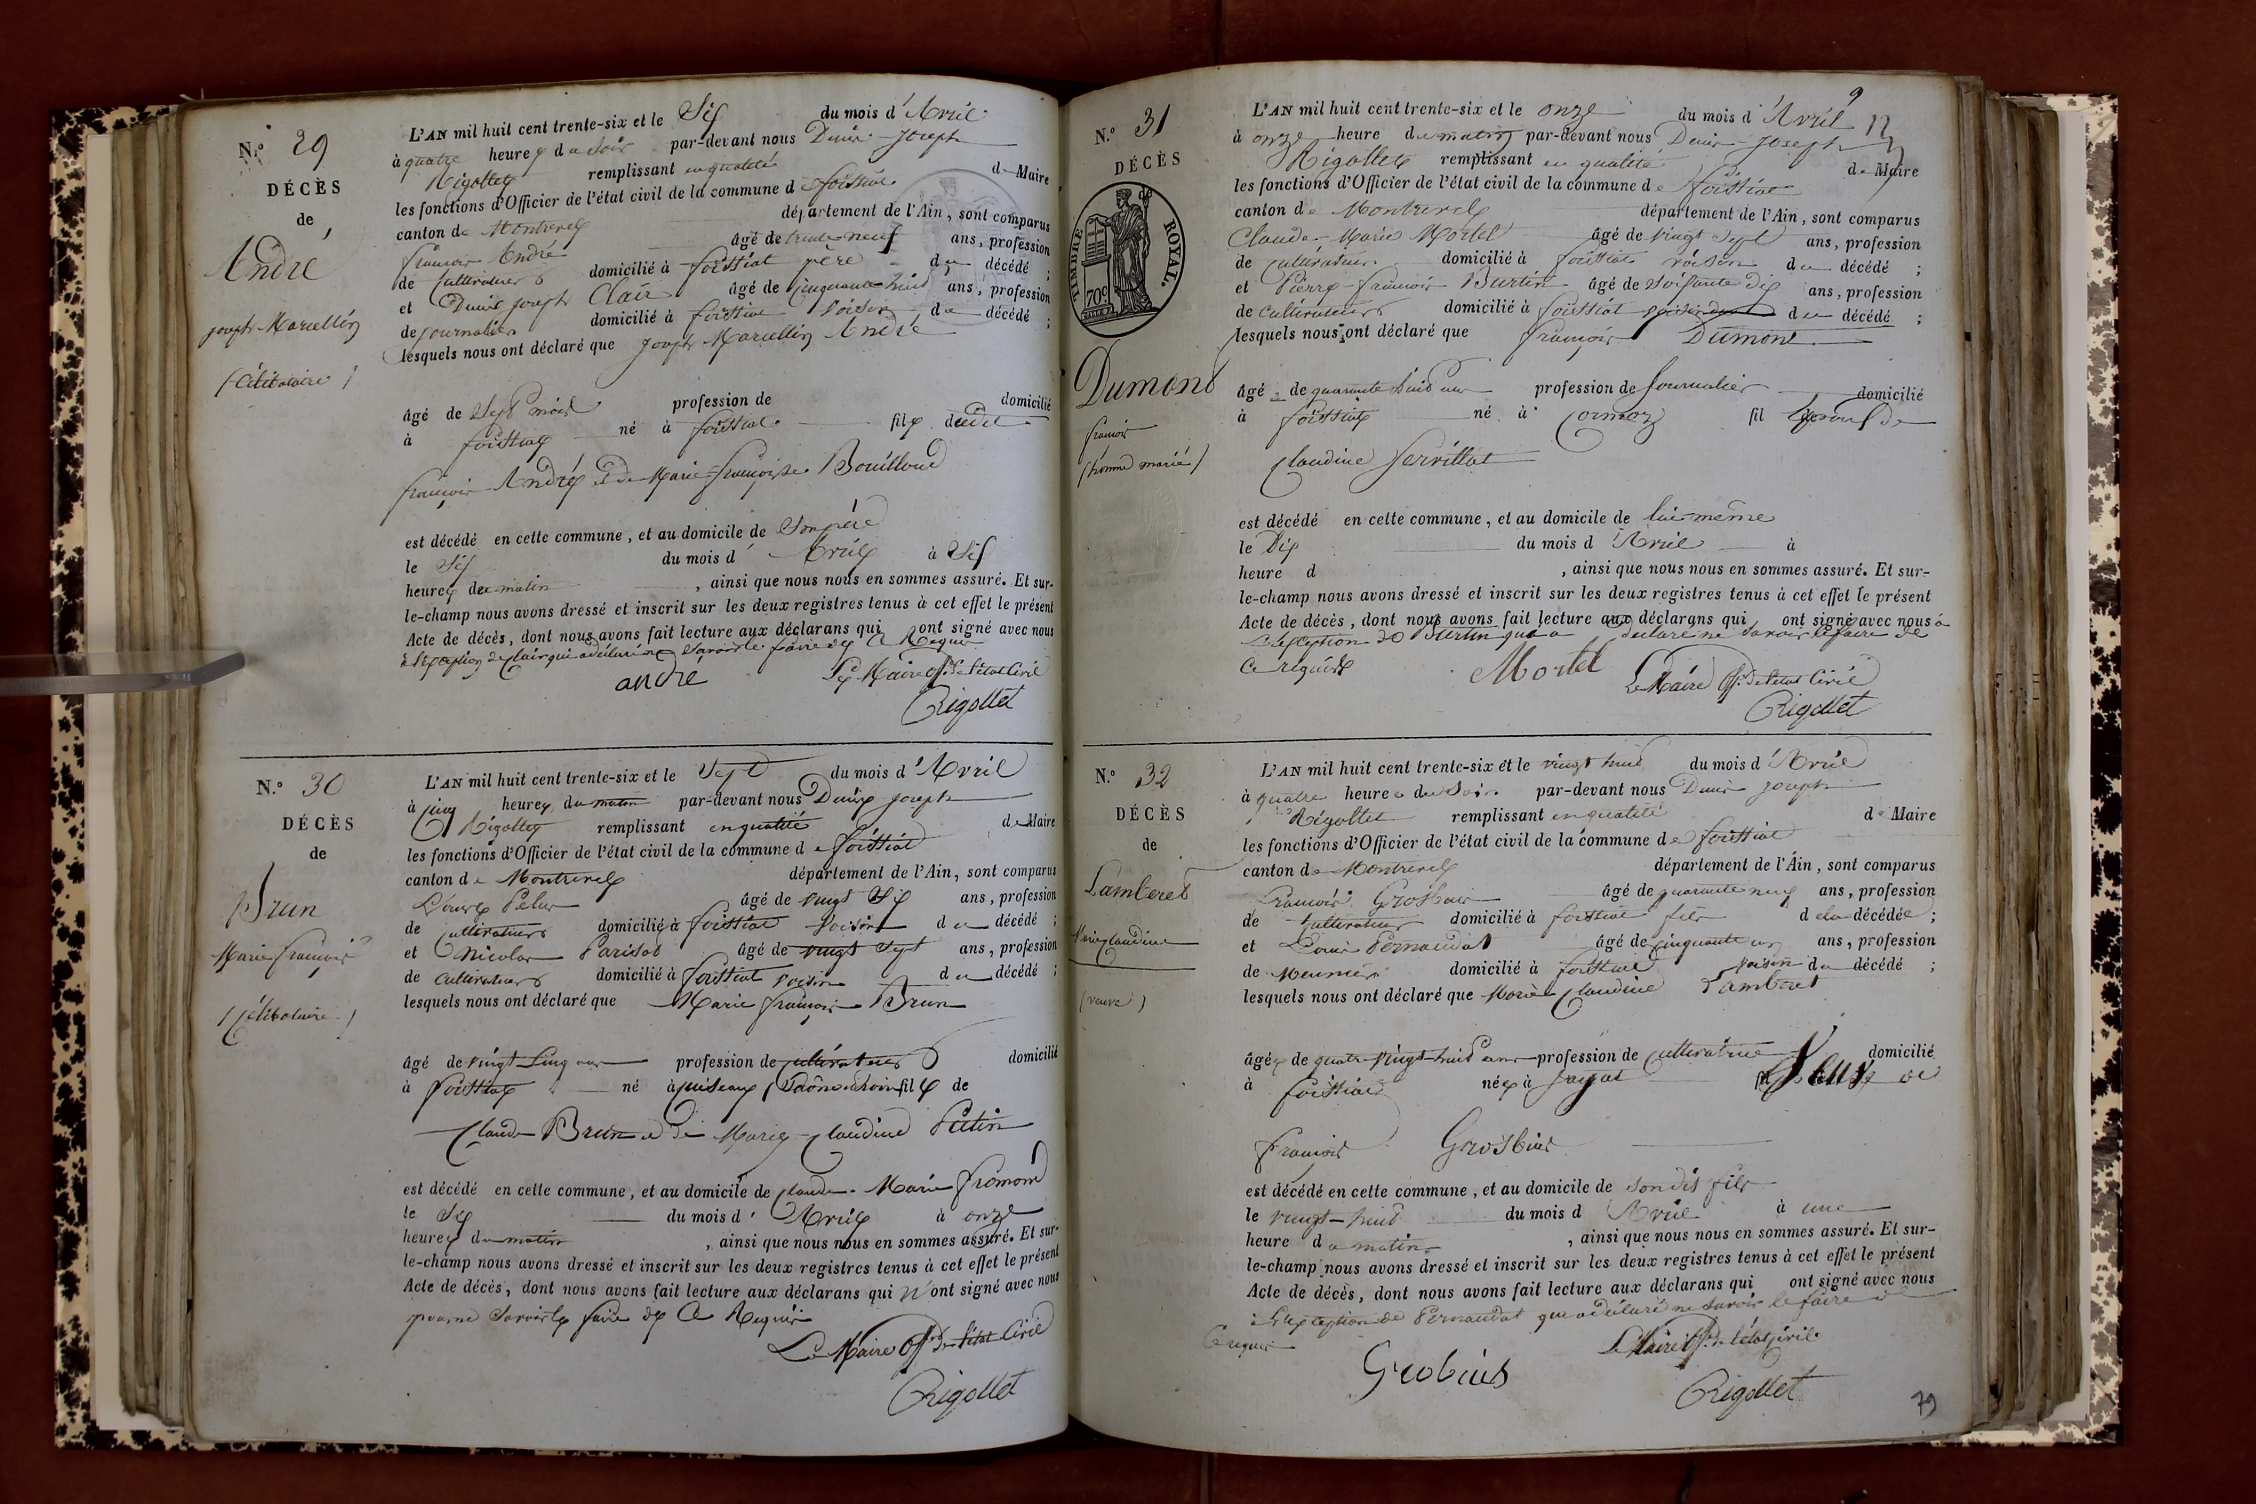 N.º 29
DÉCÈS
de
André
joseph Marcellin
(Célibataire)
L'AN mil huit cent trente-six et le Six du mois d'Avril
à quatre heures du soir par-devant nous Denis Joseph
Rigollet remplissant en qualité de Maire
les fonctions d'Officier de l'état civil de la commune de foissiat
canton de Montrevel département de l'Ain, sont comparus
françois André âgé de trente neuf ans, profession
de Cultivateur domicilié à foissiat père du décédé ;
et Denis joseph Clair âgé de cinquante huit ans, profession
de journalier domicilié à foissiat voisin du décédé ;
lesquels nous ont déclaré que joseph Marcellin André
âgé de Sept mois profession de domicilié
à foissiat né à foissiat fils dudit
françois André et de Marie françoise Bouilloud
est décédé en cette commune, et au domicile de Son père
le Six du mois d'Avril à Six
heures du matin, ainsi que nous nous en sommes assuré. Et sur-
le-champ nous avons dressé et inscrit sur les deux registres tenus à cet effet le présent
Acte de décès, dont nous avons fait lecture aux déclarans qui ont signé avec nous
à l'exception de Clair qui a déclaré ne Savoir le faire de ce Requis
andré Le Maire off. de l'état Civil
Rigollet
N.º 30
DÉCÈS
de
Brun
Marie françois
(Célibataire)
L'AN mil huit cent trente-six et le Sept du mois d'Avril
à cinq heures du matin par-devant nous Denis joseph
Rigollet remplissant en qualité de Maire
les fonctions d'Officier de l'état civil de la commune de foissiat
canton de Montrevel département de l'Ain, sont comparus
âgé de vingt Six ans, profession
de cultivateur domicilié à foissiat voisin du décédé ;
et Nicolas Parisot âgé de vingt Sept ans, profession
de cultivateur domicilié à foissiat voisin du décédé ;
lesquels nous ont déclaré que Marie françois Brun
âgé de vingt Cinq ans profession de cultivateur domicilié
à foissiat né à fils de
Claude Brun et de Marie Claudine Putin
est décédé en cette commune, et au domicile de Claude Marie fromond
le Six du mois d'Avril à onze
heures du matin, ainsi que nous nous en sommes assuré. Et sur-
le-champ nous avons dressé et inscrit sur les deux registres tenus à cet effet le présent
Acte de décès, dont nous avons fait lecture aux déclarans qui n'ont signé avec nous
pour ne Savoir le faire de Ce Requis
Le Maire Off. de l'état Civil
Rigollet
9
N.º 31
DÉCÈS
de
TIMBRE ROYAL.
70c
Dumond
françois
(homme marié)
L'AN mil huit cent trente-six et le onze du mois d'Avril
à onze heure du matin par-devant nous Denis Joseph
Rigollet remplissant en qualité de Maire
les fonctions d'Officier de l'état civil de la commune de foissiat
canton de Montrevel département de l'Ain, sont comparus
Claude Marie Mortel âgé de vingt Sept ans, profession
de cultivateur domicilié à foissiat voisin du décédé ;
et Pierre françois Burtin âgé de Soixante dix ans, profession
de cultivateur domicilié à foissiat voisin du décédé ;
lesquels nous ont déclaré que françois Dumond
âgé de quarante huit ans profession de journalier domicilié
à foissiat né à Cormoz fil époux de
Claudine Servillat
est décédé en cette commune, et au domicile de lui-même
le Dix du mois d'Avril à
heure d , ainsi que nous nous en sommes assuré. Et sur-
le-champ nous avons dressé et inscrit sur les deux registres tenus à cet effet le présent
Acte de décès, dont nous avons fait lecture aux déclarans qui ont signé avec nous à
l'exception de Burtin qui a déclaré ne Savoir le faire de
Ce requis Mortel Le Maire off. de l'état Civil
Rigollet
N.º 32
DÉCÈS
de
Lamberet
Marie Claudine
(veuve)
L'AN mil huit cent trente-six et le vingt huit du mois d'Avril
à quatre heures du Soir par-devant nous Denis joseph
Rigollet remplissant en qualité de Maire
les fonctions d'Officier de l'état civil de la commune de foissiat
canton de Montrevel département de l'Ain, sont comparus
françois Grosbuis âgé de quarante neuf ans, profession
de cultivateur domicilié à foissiat fils de la décédée ;
et Louis Pernaudat âgé de cinquante un ans, profession
de Meunier domicilié à foissiat voisin du décédé ;
lesquels nous ont déclaré que Marie Claudine Lamberet
âgée de quatre-vingt-huit ans profession de cultivatrice domicilié
à foissiat née à Jayat fil Veuve de
françois Grosbuis
est décédé en cette commune, et au domicile de son dit fils
le vingt-huit du mois d'Avril à une
heure du matin, ainsi que nous nous en sommes assuré. Et sur-
le-champ nous avons dressé et inscrit sur les deux registres tenus à cet effet le présent
Acte de décès, dont nous avons fait lecture aux déclarans qui ont signé avec nous
à l'exception de Pernaudat qui a déclaré ne savoir le faire de
Ce requis Le Maire off. de l'état Civil
Grobuis Rigollet
79